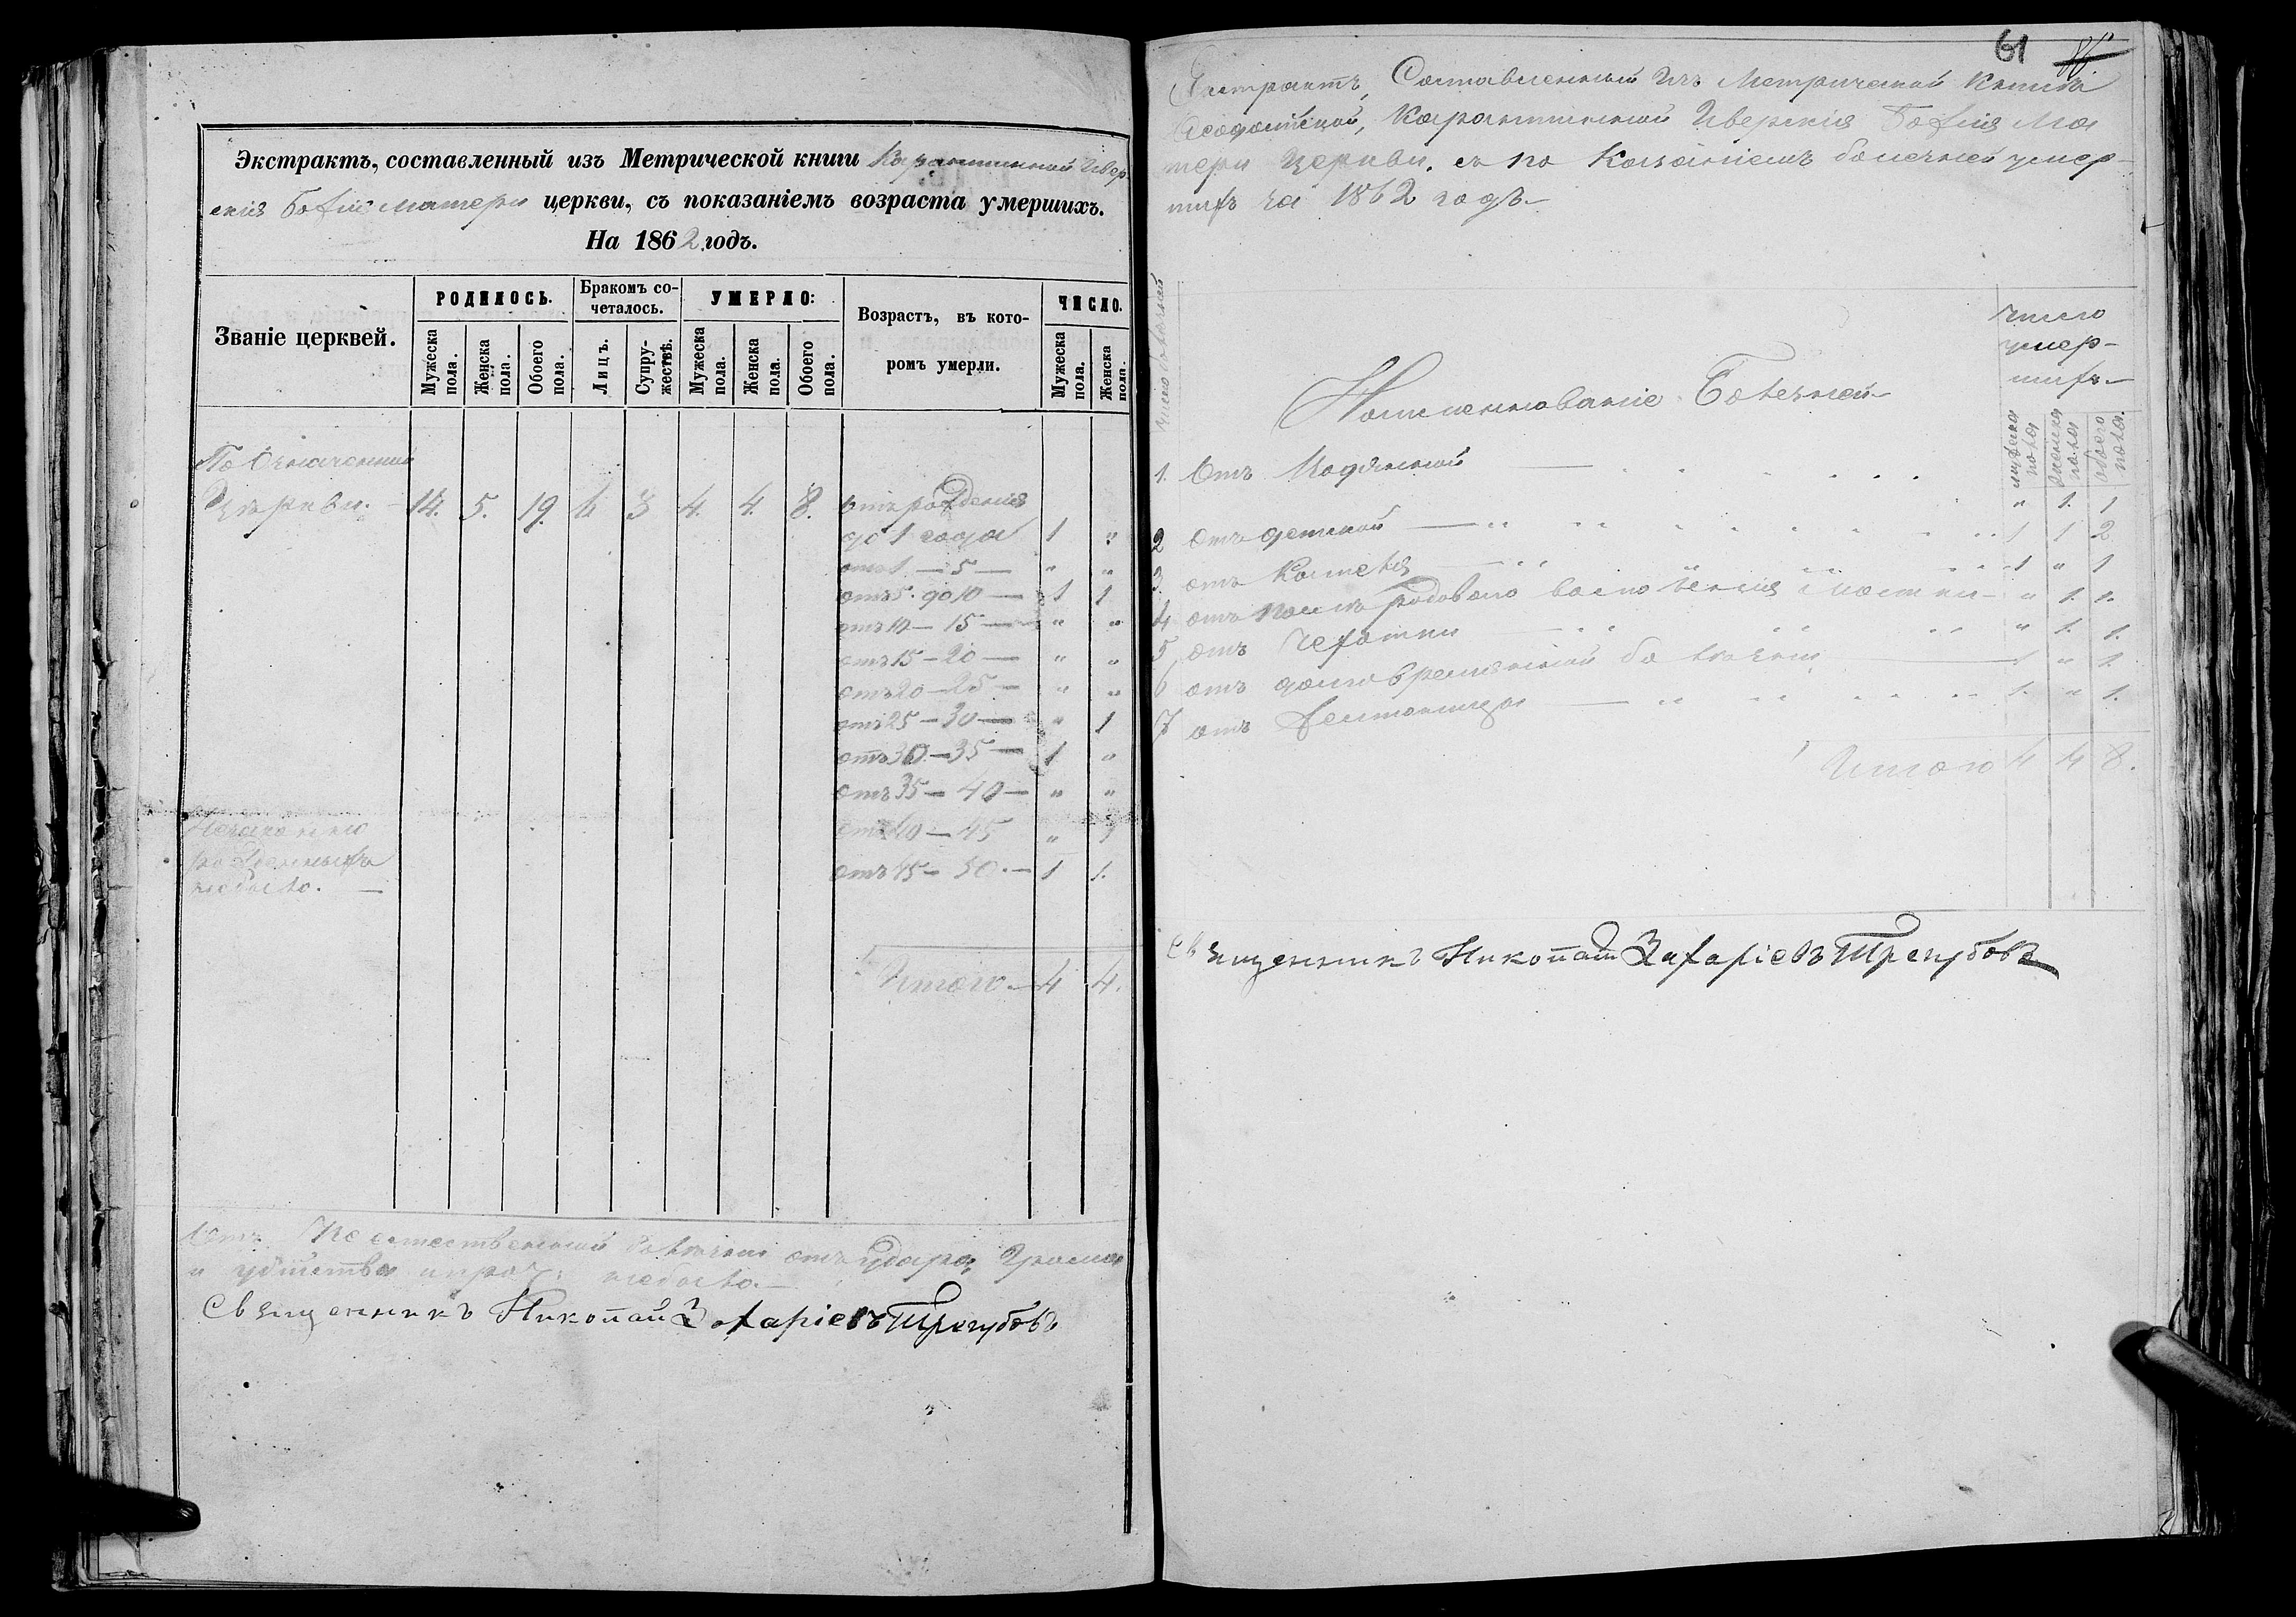 Экстрактъ, составленный изъ Метрической книги Карантинной Ивер-
скія Божіе матери церкви, съ показаніемъ возраста умершихъ.
На 1862 годъ.
Званіе церквей.
РОДИЛОСЬ.
Бракомъ со-
четалось.
УМЕРЛО:
Возрастъ, въ кото-
ромъ умерли.
ЧИСЛО.
Мужеска пола.
Женска пола.
Обоего пола.
Лицъ.
Супру-
жествъ.
Мужеска пола.
Женска пола.
Обоего пола.
Мужеска пола.
Женска пола.
По Означенной
Церкви. 14. 5. 19. 6 3 4. 4. 8. отъ рожденія
до 1 года 1 "
отъ 1 — 5 — " "
отъ 5 до 10 — 1 1
отъ 10 — 15 — " "
отъ 15 — 20 — " "
отъ 20 — 25 — " "
отъ 25 — 30 — " 1
отъ 30 — 35 — 1 "
отъ 35 — 40 — " "
Незаконно отъ 40 — 45 " 1
рожденныхъ
небыло. — отъ 45 — 50. — 1 1.
Итого — 4 4.
Отъ Неестественной болезни отъ удара, Грома
и убийства и проч: небыло —
Священникъ Николай Захаріевъ Трегубовъ
61
Экстрактъ, Составленный Изъ Метрической Книги
Феодосійской, Карантинной Иверскія Божія Ма
тери Церкви, съ по Казаніемъ болезней умер-
шихъ за 1862 годъ —
Число болезней
Наименованіе Болезней —
число
умер-
шихъ —
мужеска пола
женска пола
обоего пола.
1. Отъ Водянной — " 1. 1
2 Отъ детской — 1 1 2
3. отъ Кашеля — 1 " 1
4 отъ послѣ родоваго воспо ления — " 1. 1.
5 отъ Чехотки — " 1. 1.
6 отъ долговременной болезни — 1 " 1.
7 отъ — 1. " 1.
Итого 4 4 8.
Священникъ Николай Захаріевъ Трегубовъ